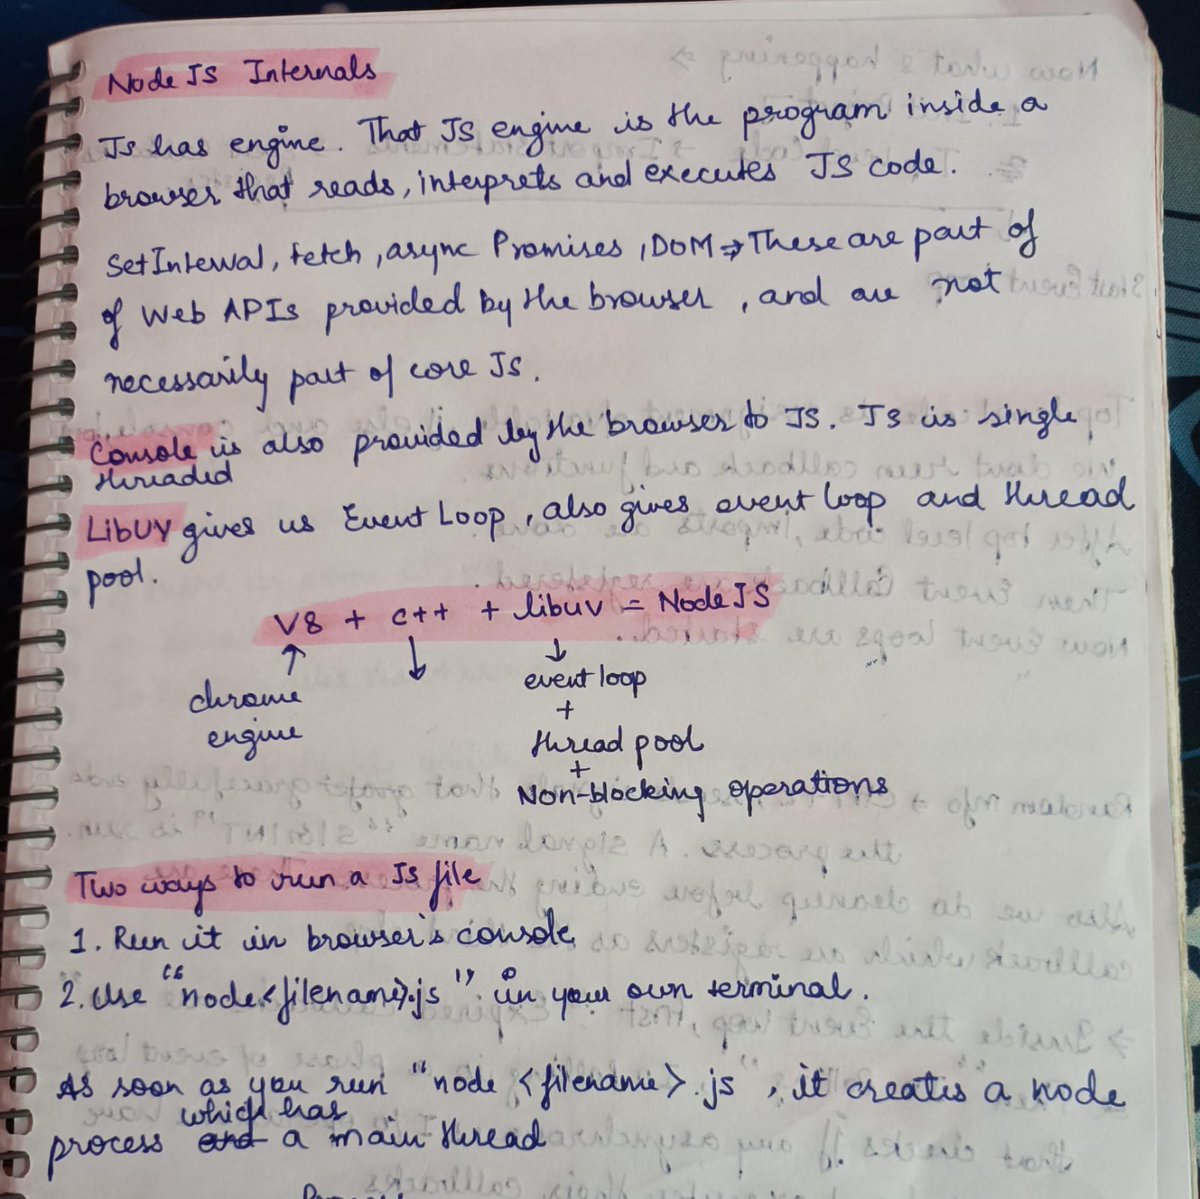 Node JS Internals
Js has engine. That JS engine is the program inside a
browser that reads, interprets and executes JS code.
SetInterval, fetch, async Promises, DOM → These are part of
of Web APIs provided by the browser, and are not
necessarily part of core JS.
Console is also provided by the browser to JS. JS is single
threaded
LibUV gives us Event Loop, also gives event loop and thread
pool.
V8 + C++ + libuv = Node JS
↑ ↓ ↓
chrome event loop
engine +
thread pool
+
Non-blocking operations
Two ways to run a Js file
1. Run it in browser's console
2. Use "node <filename>.js" in your own terminal.
As soon as you run "node <filename>.js, it creates a node
which has
process and a main thread